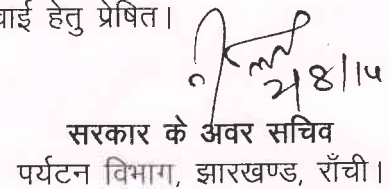 वाई हेतु प्रेषित।
सरकार के अवर सचिव
पर्यटन विभाग, झारखण्ड, राँची।